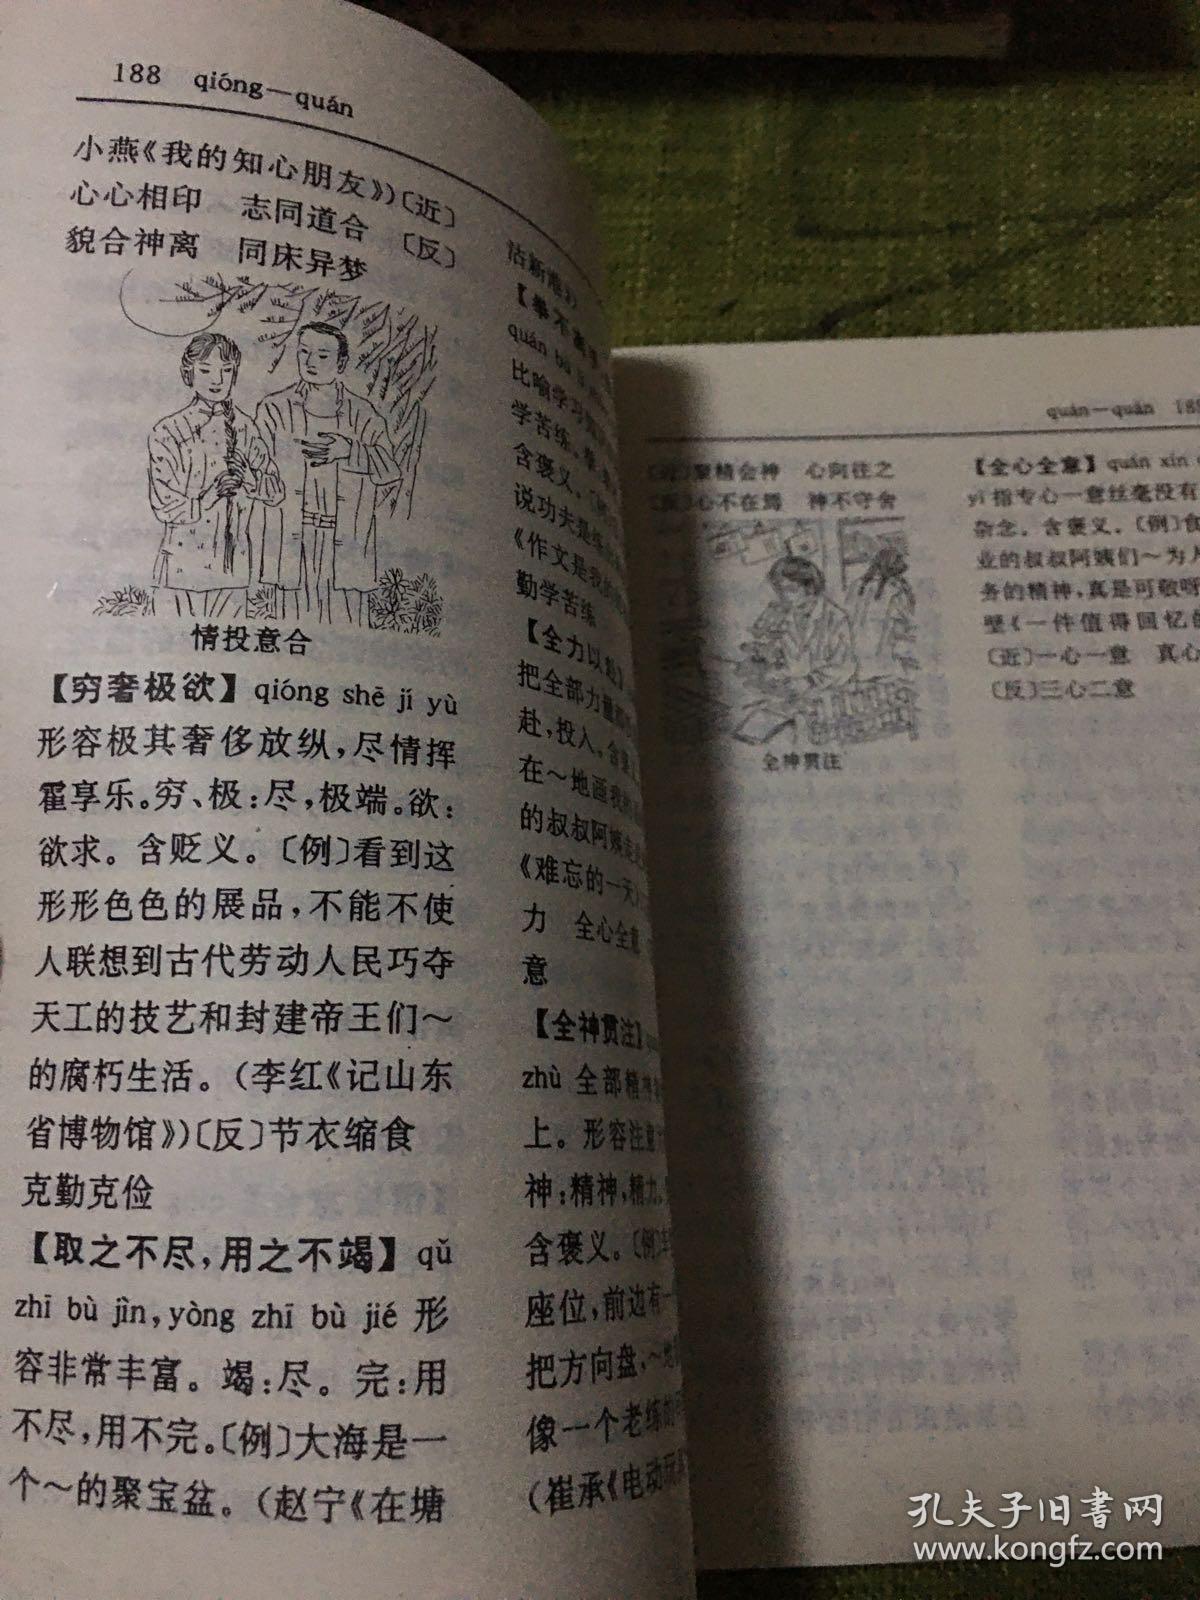 188 qióng—quán
小燕《我的知心朋友》）〔近〕
心心相印 志同道合 〔反〕
貌合神离 同床异梦
情投意合
【穷奢极欲】qióng shē jí yù
形容极其奢侈放纵，尽情挥
霍享乐。穷、极：尽，极端。欲：
欲求。含贬义。〔例〕看到这
形形色色的展品，不能不使
人联想到古代劳动人民巧夺
天工的技艺和封建帝王们～
的腐朽生活。（李红《记山东
省博物馆》）〔反〕节衣缩食
克勤克俭
【取之不尽，用之不竭】qǔ
zhī bù jìn, yòng zhī bù jié 形
容非常丰富。竭：尽。完：用
不尽，用不完。〔例〕大海是一
个～的聚宝盆。（赵宁《在塘
沽新港》）
【拳不离手
quán bù lí
比喻学习
学苦练。
含褒义。
说功夫是
《作文是我
勤学苦练
【全力以赴】
把全部力量
赴，投入。含
在～地画我
的叔叔阿姨
《难忘的一天》
力 全心全意
意
【全神贯注】
zhù 全部精
上。形容注意
神：精神，精力。
含褒义。〔例〕
座位，前边有一
把方向盘，～地
像一个老练的
（崔承《电动玩
quán—quǎn 189
〔近〕聚精会神 心向往之
〔反〕心不在焉 神不守舍
全神贯注
【全心全意】quán xīn
yì 指专心一意丝毫没有
杂念。含褒义。〔例〕
业的叔叔阿姨们～为人
务的精神，真是可敬呀
《一件值得回忆的
〔近〕一心一意 真心
〔反〕三心二意
孔夫子旧书网
www.kongfz.com